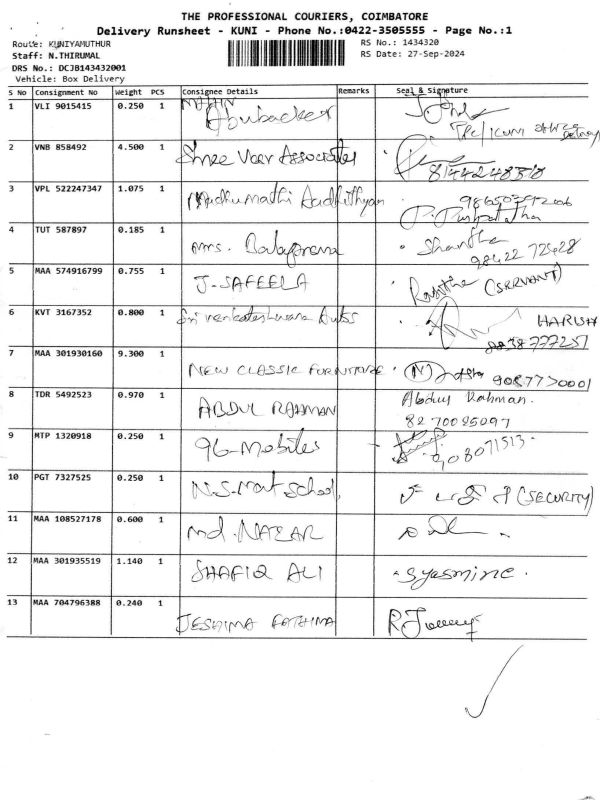 THE PROFESSIONAL COURIERS, COIMBATORE
Delivery Runsheet - KUNI - Phone No.:0422-3505555 - Page No.:1
Route: KUNIYAMUTHUR RS No.: 1434320
Staff: N.THIRUMAL RS Date: 27-Sep-2024
DRS No.: DCJB143432001
Vehicle: Box Delivery
S No Consignment No Weight PCS Consignee Details Remarks Seal & Signature
1 VLI 9015415 0.250 1 Abubacker
2 VNB 858492 4.500 1 Shree Veer Associates 8144248318
3 VPL 522247347 1.075 1 Madhumathi Aadhithyan
4 TUT 587897 0.185 1 mrs. Shantha
98422 72428
5 MAA 574916799 0.755 1 J-SAFEELA (SERVANT)
6 KVT 3167352 0.800 1 Sri venkateshwara Autos HARISH
8838777257
7 MAA 301930160 9.300 1 NEW CLASSIC FURNITURE 9087770001
8 TDR 5492523 0.970 1 ABDUL RAHMAN Abdul Rahman.
8270085097
9 MTP 1320918 0.250 1 96-Mobiles
10 PGT 7327525 0.250 1 N.S-Mat School, (SECURITY)
11 MAA 108527178 0.600 1 Md. NAZAR
12 MAA 301935519 1.140 1 SHAFIQ ALI Syasmine.
13 MAA 704796388 0.240 1 JESHIMA FATHIMA